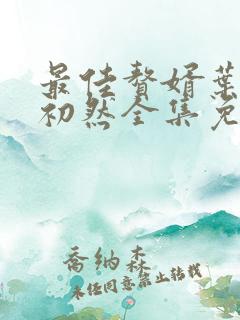 最佳赘婿葉
初然全集免
喬纳森
未任同意禁止转载